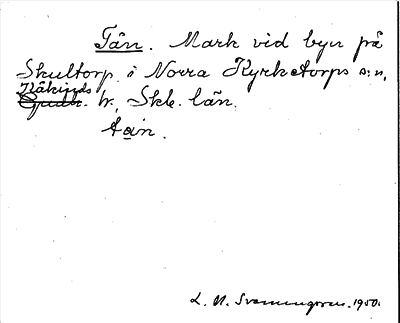 Tån. Mark vid byn på
Skultorp i Norra Kyrketorps s:n,
Kåkinds
Gudh. h., Skb. län.
tån.
L. M. Svanungson. 1950.